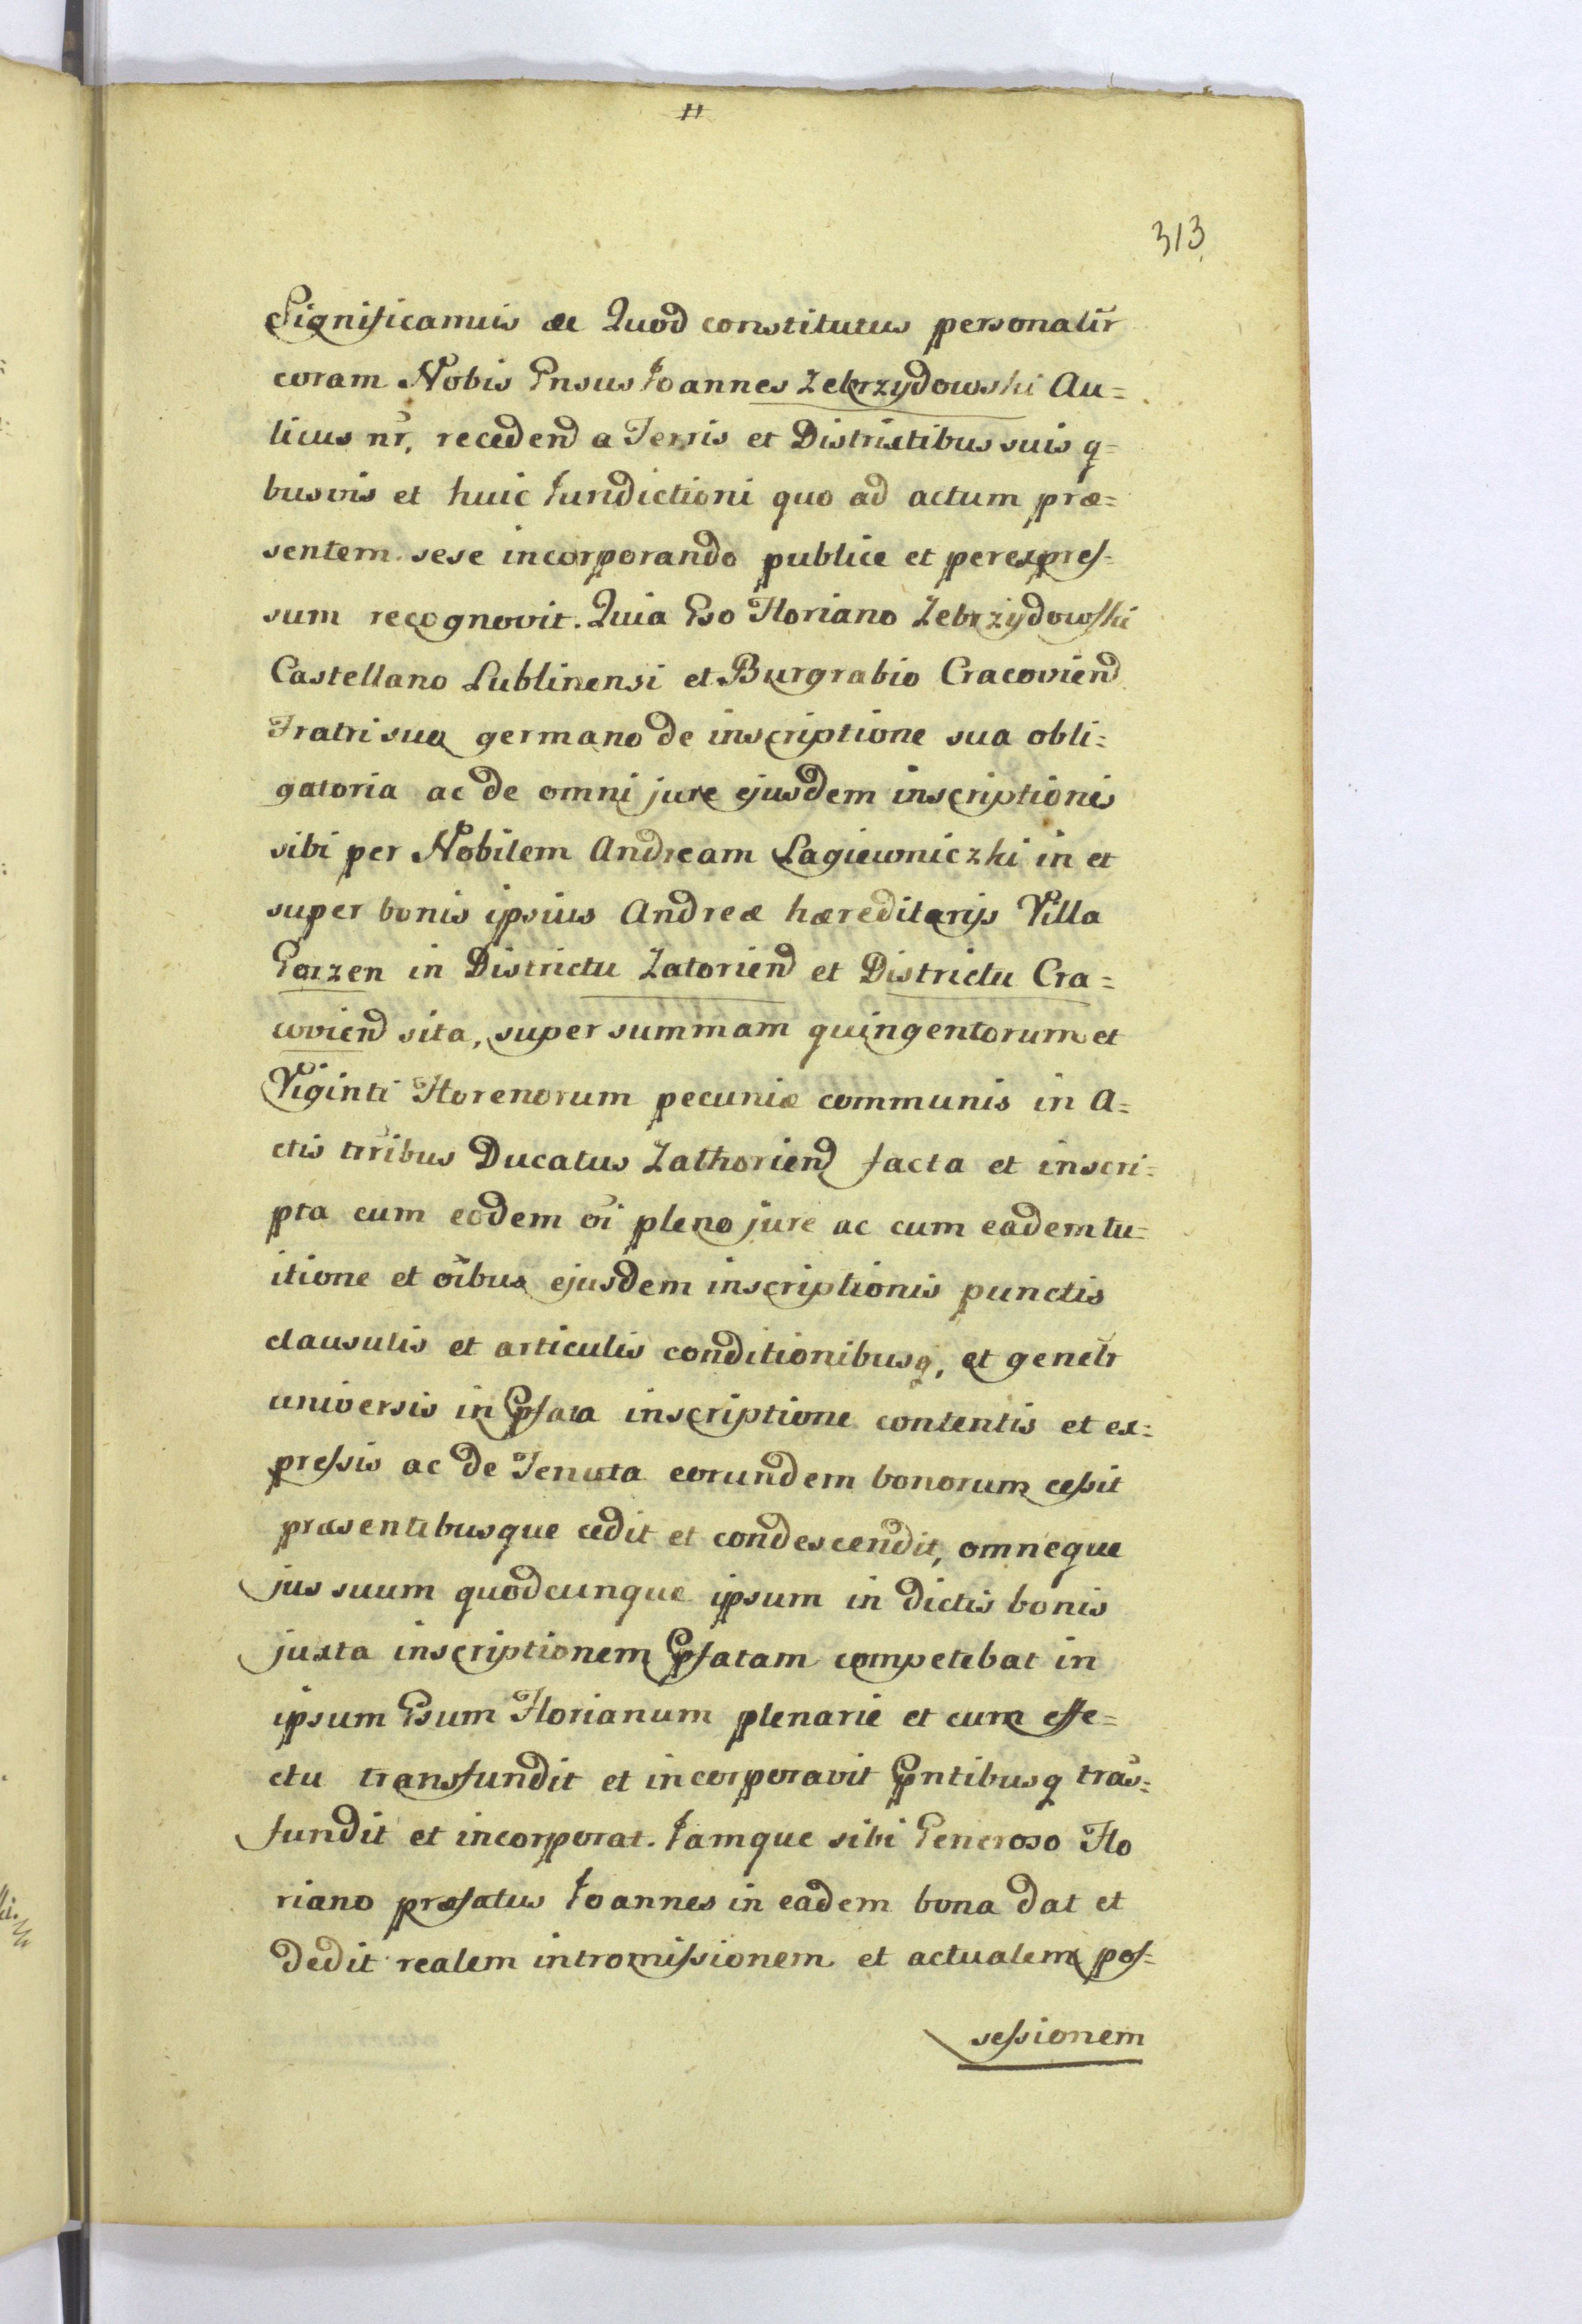 #
313
Significamus &c Quod constitutus personalir
coram Nobis Gnsus Joannes Zebrzydowski Au=
licus nr, recedend a Terris et Districtibus suis q=
busvis et huic Jurisdictioni quo ad actum præ=
sentem sese incorporando publice et per expres=
sum recognovit. Quia Gso Floriano Zebrzydowski
Castellano Lublinensi et Burgrabio Cracoviend
Fratri suo germano de inscriptione sua obli=
gatoria ac de omni jure ejusdem inscriptionis
sibi per Nobilem Andream Lagiewniczki in et
super bonis ipsius Andreæ hæreditarijs Villa
Gorzen in Districtu Zatoriend et Districtu Cra=
coviend sita, super summam quingentorum et
Viginti Florenorum pecuniæ communis in A=
ctis trribus Ducatus Zathoriend facta et inscri=
pta cum eodem oi pleno jure ac cum eadem tu=
itione et oibus ejusdem inscriptionis punctis
clausulis et articulis conditionibusq, et genelr
universis in Pfata inscriptione contentis et ex=
pressis ac de Tenuta eorundem bonorum cessit
præsentibusque cedit et condescendit, omneque
jus suum quodcunque ipsum in dictis bonis
juxta inscriptionem Pfatam competebat in
ipsum Gsum Florianum plenarie et cum effe=
ctu transfundit et incorporavit Pntibusq tras=
fundit et incorporat. Jamque sibi Generoso Flo
riano præfatus Joannes in eadem bona dat et
dedit realem intromissionem et actualem pos=
sessionem